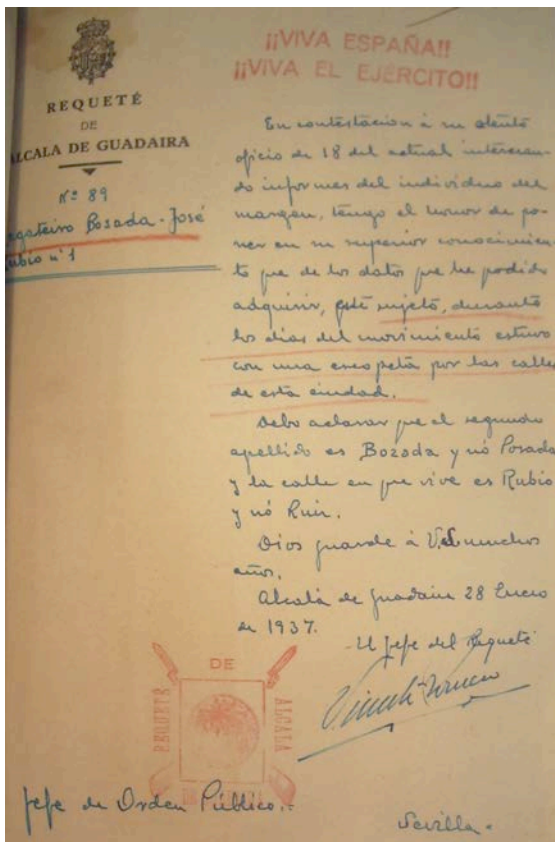 REQUETÉ
DE
ALCALA DE GUADAIRA
Nº 89
egateiro Bosada - José
Rubio nº 1
¡¡VIVA ESPAÑA!!
¡¡VIVA EL EJÉRCITO!!
En contestación á su atento
oficio de 18 del actual interesan-
do informes del individuo del
margen, tengo el honor de po-
ner en su superior conocimien-
to que de los datos que he podido
adquirir, este sujeto, durante
los dias del movimiento estuvo
con una escopeta por las calles
de esta ciudad.
Debo aclarar que el segundo
apellido es Bozada y nó Posada
y la calle en que vive es Rubio
y nó Ruiz.
Dios guarde á Vd muchos
años.
Alcalá de Guadaira 28 Enero
de 1937.
El Jefe del Requeté
DE
REQUETÉ
ALCALA
Jefe de Orden Público.-
Sevilla.-